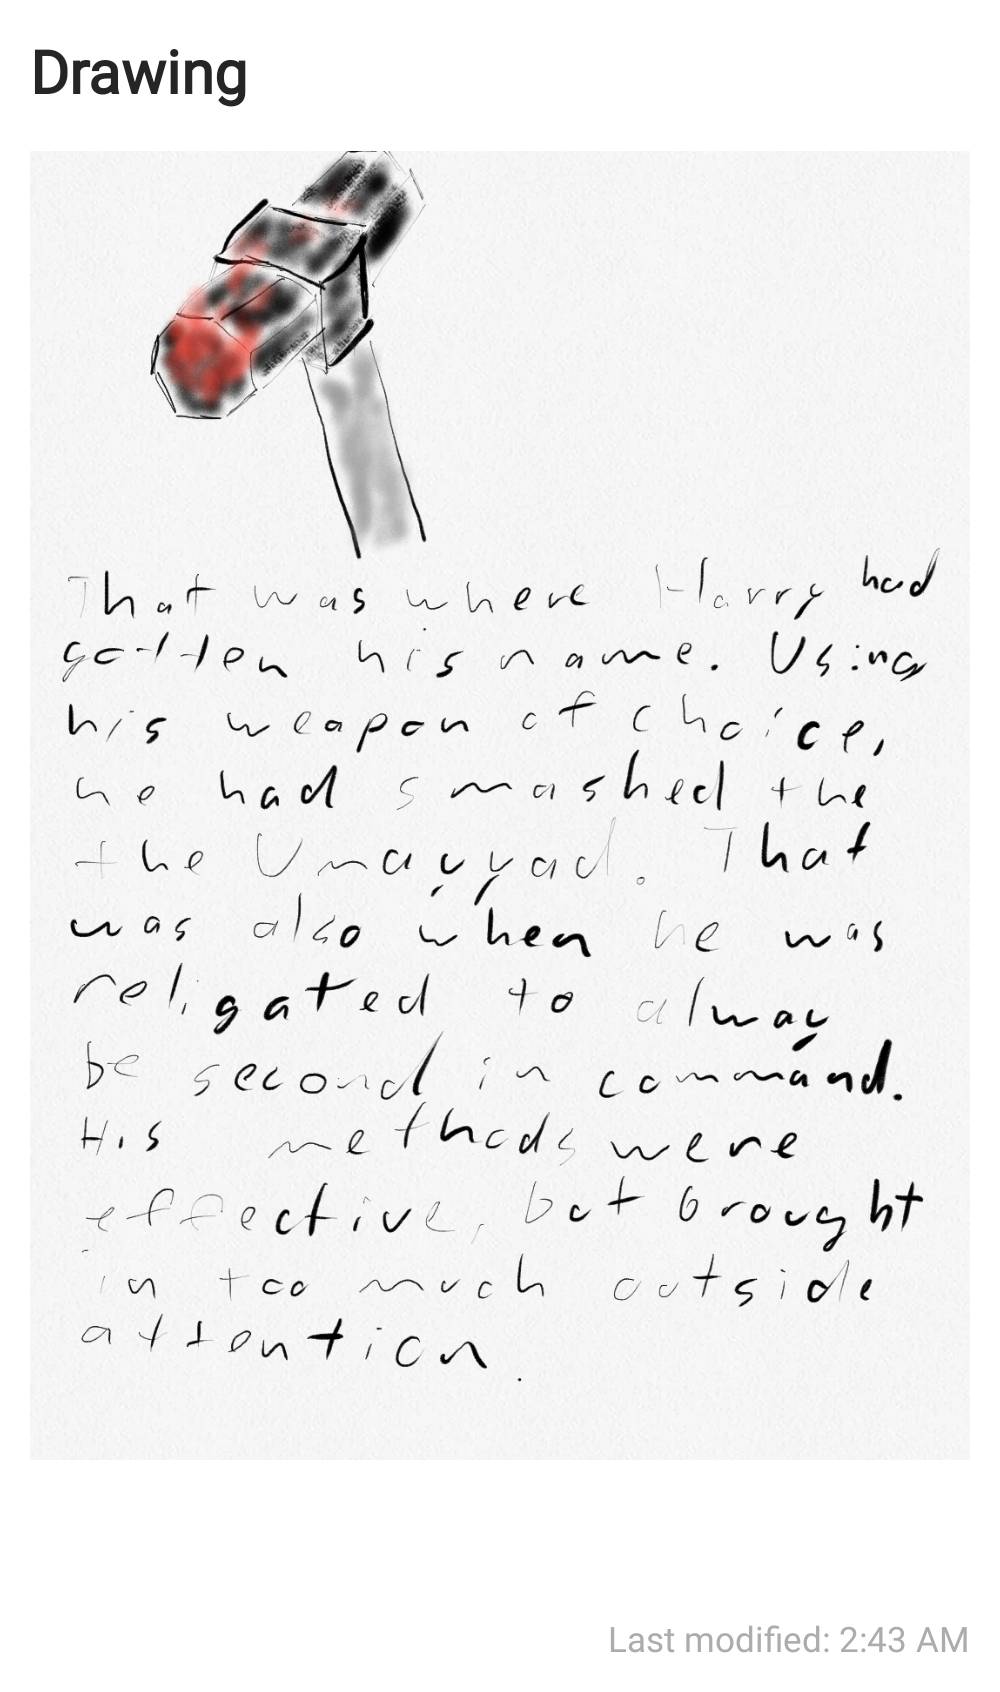 Drawing
That was where Harry had
gotten his name. Using
his weapon of choice,
he had smashed the
the Umayyad. That
was also when he was
religated to alway
be second in command.
His methods were
effective, but brought
in too much outside
attention.
Last modified: 2:43 AM